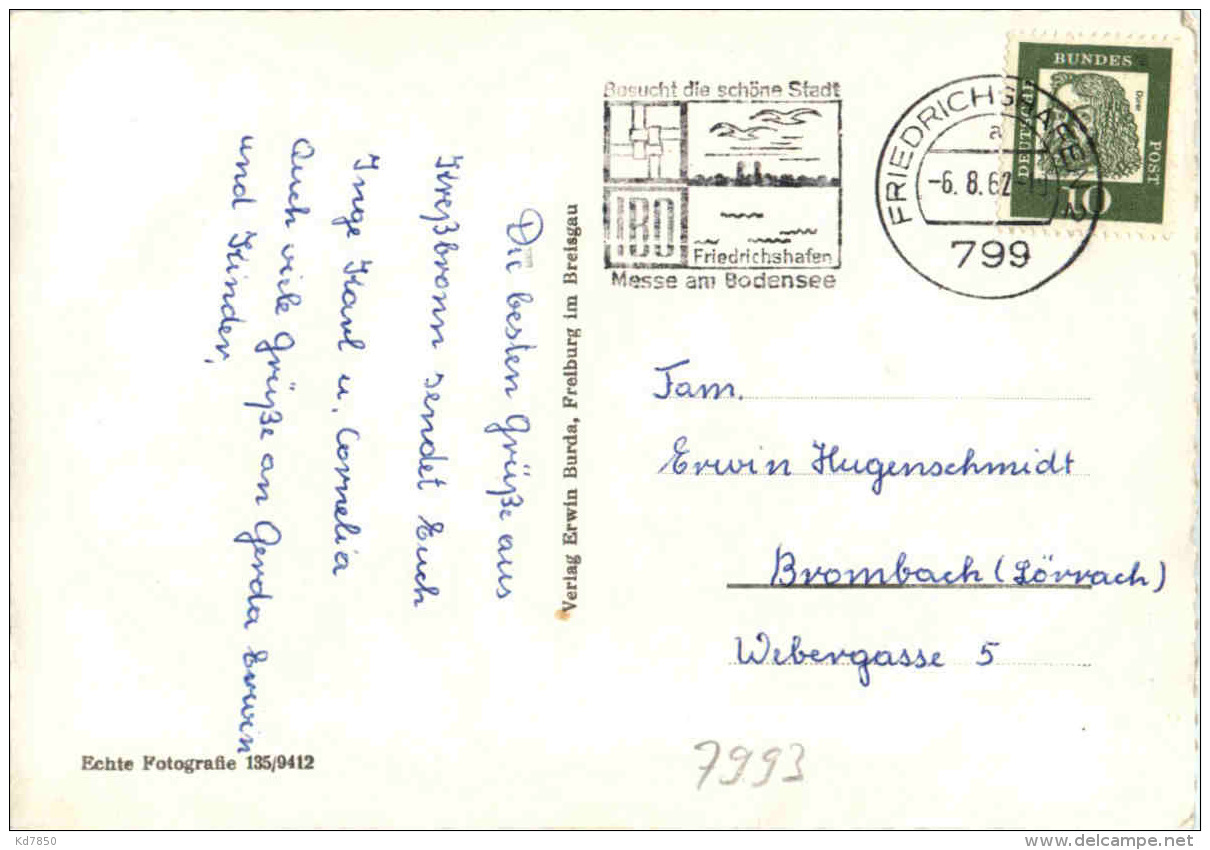 Besucht die schöne Stadt
IBO
Friedrichshafen
Messe am Bodensee
FRIEDRICHSHAFEN 2
a
-6.8.62-
799
DEUTSCHE
BUNDES
POST
Dürer
10
Die besten Grüße aus
Kreßbronn sendet Euch
Inge Karl u. Cornelia
Auch viele Grüße an Gerda Erwin
und Kinder,
Verlag Erwin Burda, Freiburg im Breisgau
Fam.
Erwin Hugenschmidt
Brombach (Lörrach)
Webergasse 5
Echte Fotografie 135/9412
7993
Kd7850
www.delcampe.net